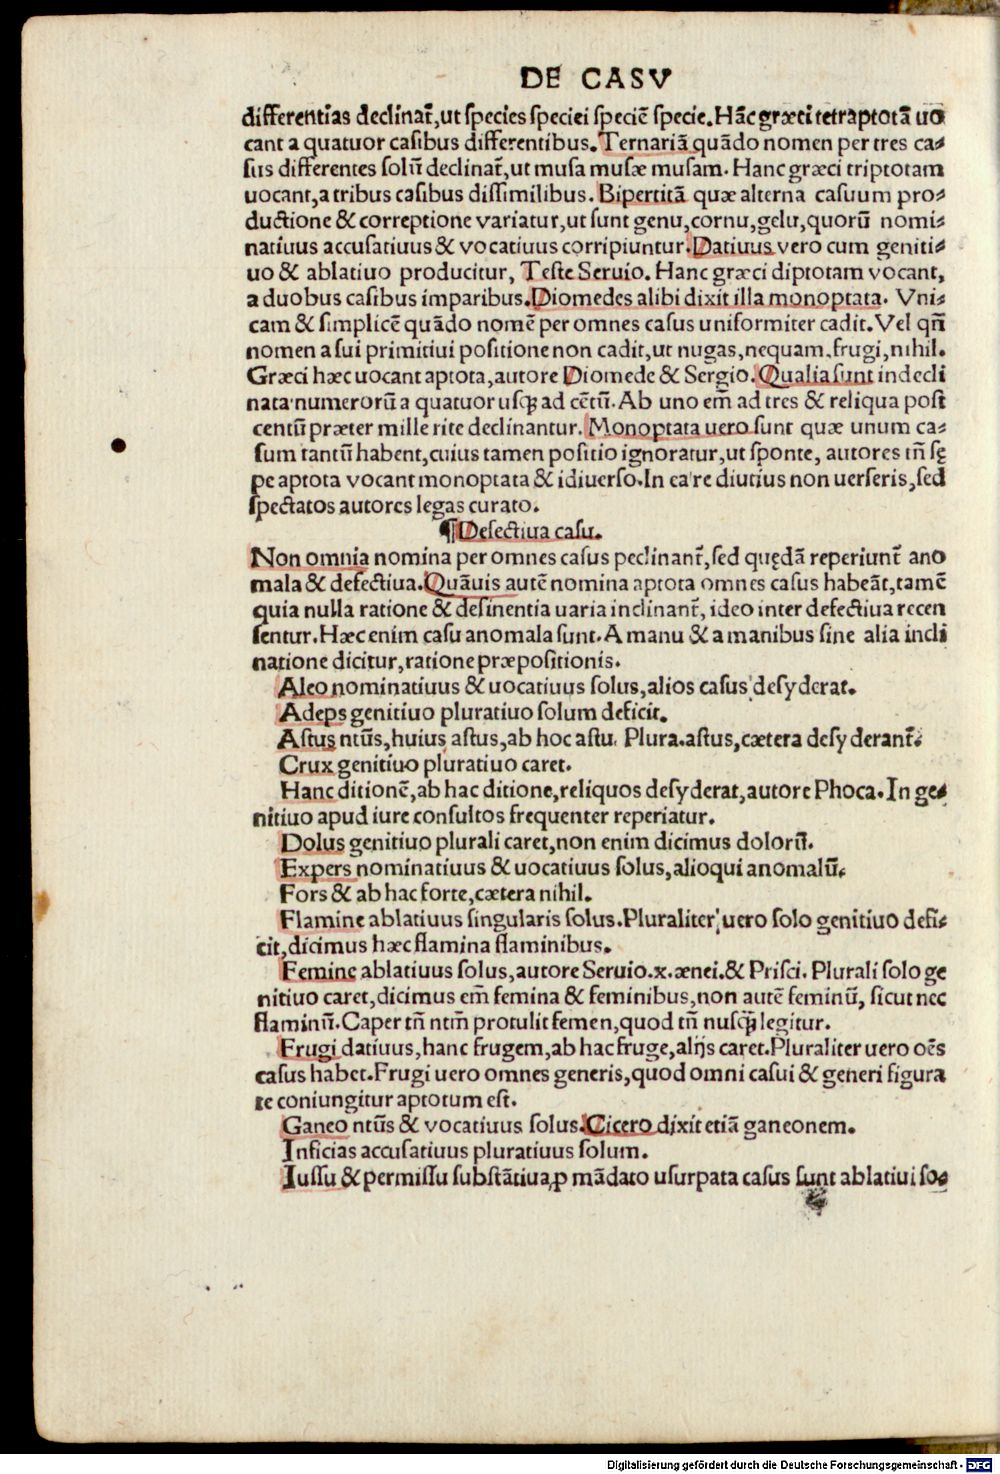 DE CASV
differentias declinat᷑,ut species speciei speciē specie.Hāc græci tetraptotā uo
cant a quatuor casibus differentibus.Ternariā quādo nomen per tres ca-
sus differentes solū declinat᷑,ut musa musæ musam. Hanc græci triptotam
uocant,a tribus casibus dissimilibus. Bipertitā quæ alterna casuum pro-
ductione & correptione variatur,ut sunt genu,cornu,gelu,quorū nomi-
natiuus accusatiuus & vocatiuus corripiuntur.Datiuus vero cum geniti-
uo & ablatiuo producitur, Teste Seruio. Hanc græci diptotam vocant,
a duobus casibus imparibus.Diomedes alibi dixit illa monoptata. Vni-
cam & simplicē quādo nomē per omnes casus uniformiter cadit.Vel qn̄
nomen a sui primitiui positione non cadit,ut nugas,nequam,frugi,nihil.
Græci hæc uocant aptota,autore Diomede & Sergio.Qualia sunt indecli
nata numerorū a quatuor usq̨ ad cētū.Ab uno em̄ ad tres & reliqua post
centū præter mille rite declinantur. Monoptata uero sunt quæ unum ca-
sum tantū habent,cuius tamen positio ignoratur,ut sponte, autores tn̄ sę
pe aptota vocant monoptata & idiuerso.In ea re diutius non uerseris,sed
spectatos autores legas curato.
¶Defectiua casu.
Non omnia nomina per omnes casus peclinant᷑,sed quędā reperiunt᷑ ano
mala & defectiua.Quāuis autē nomina aptota omnes casus habeāt,tamē
quia nulla ratione & desinentia uaria inclinant᷑, ideo inter defectiua recen
sentur.Hæc enim casu anomala sunt.A manu & a manibus sine alia incli
natione dicitur,ratione præpositionis.
Aleo nominatiuus & uocatiuus solus,alios casus desyderat.
Adeps genitiuo pluratiuo solum deficit.
Astus ntūs,huius astus,ab hoc astu. Plura.astus,cætera desyderant᷑.
Crux genitiuo pluratiuo caret.
Hanc ditionē,ab hac ditione,reliquos desyderat,autore Phoca.In ge-
nitiuo apud iure consultos frequenter reperiatur.
Dolus genitiuo plurali caret,non enim dicimus dolorū.
Expers nominatiuus & uocatiuus solus,alioqui anomalū.
Fors & ab hac forte,cætera nihil.
Flamine ablatiuus singularis solus.Pluraliter uero solo genitiuo defi-
cit,dicimus hæc flamina flaminibus.
Femine ablatiuus solus,autore Seruio.x.ænei.& Prisci. Plurali solo ge
nitiuo caret,dicimus em̄ femina & feminibus,non autē feminū, sicut nec
flaminū.Caper tn̄ ntm̄ protulit femen,quod tn̄ nusq̨̄ legitur.
Frugi datiuus,hanc frugem,ab hac fruge,alijs caret.Pluraliter uero oēs
casus habet.Frugi uero omnes generis,quod omni casui & generi figura
te coniungitur aptotum est.
Ganeo ntūs & vocatiuus solus.Cicero dixit etiā ganeonem.
Inficias accusatiuus pluratiuus solum.
Iussu & permissu substātiua,ꝓ mādato usurpata casus sunt ablatiui so-
Digitalisierung gefördert durch die Deutsche Forschungsgemeinschaft - DFG